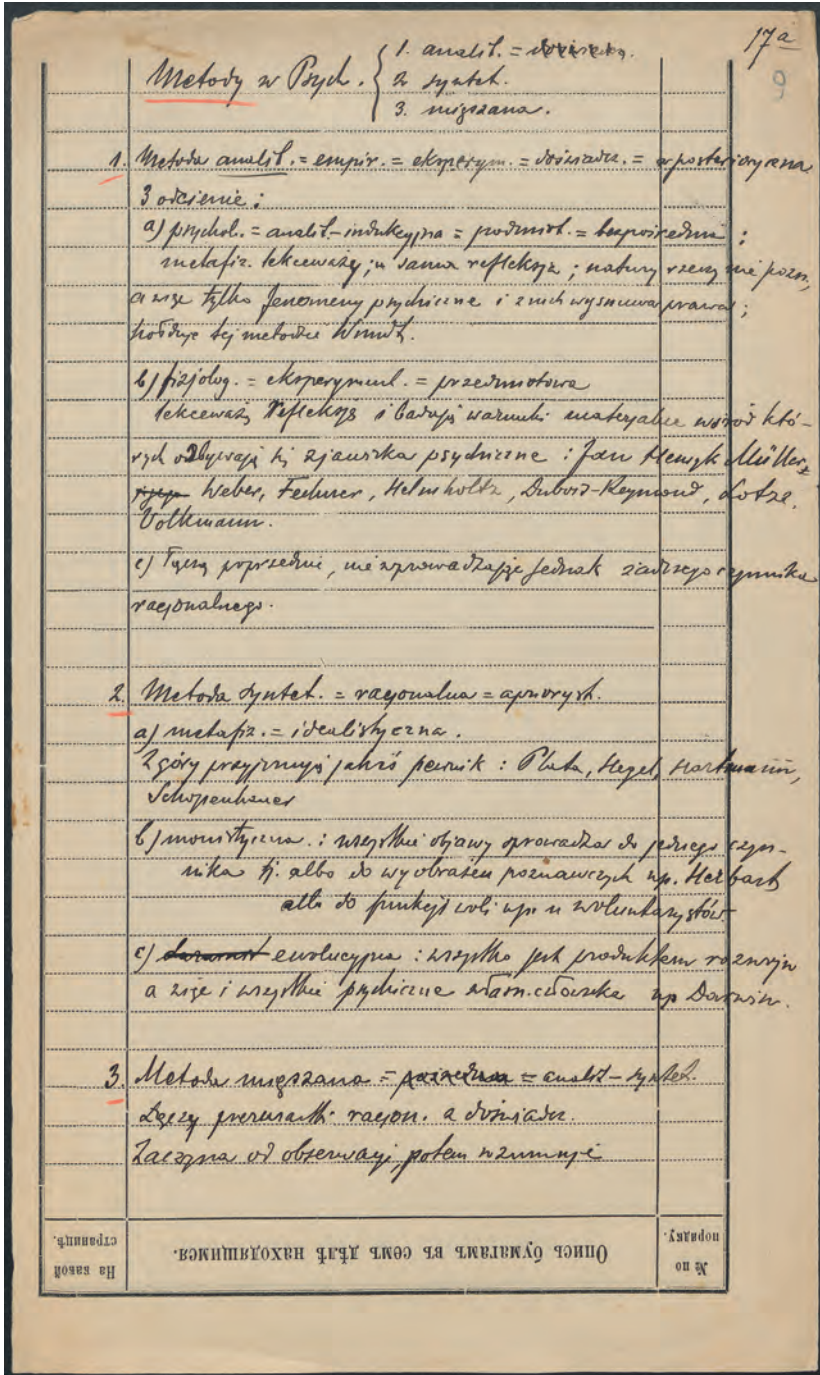 17a
9
Metody w Psych. { 1. analit. =
2 syntet.
3. mięszana.
1. Metoda analit. = empir. = eksperym. = doświadcz. = aposterioryczna
3 odcienie:
a) psychol. = analit-indukcyjna = podmiot. = bezpośrednia:
metafiz. lekceważą; u sama refleksja; natury rzeczy nie pozn,
a więc tylko fenomeny psychiczne i z nich wysnuwa prawa;
hołduje tej metodzie Wundt.
b) fizjolog. = eksperyment. = przedmiotowa
lekceważą refleksję i badają warunki materyalne wśród któ-
rych odbywają się zjawiska psychiczne: Jan Henryk Müller,
Weber, Fechner, Helmholtz, Dubois-Reymond, Lotze,
Volkmann.
c) Łączą poprzednie, nie wprowadzając jednak żadnego czynnika
racjonalnego.
2. Metoda syntet. = racyonalna = aprioryst.
a) metafiz. = idealistyczna.
Z góry przyjmują jakiś pewnik: Plato, Hegel, Hartmann,
Schopenhauer
b) monistyczna.: wszystkie objawy sprowadza do jednego czyn-
nika tj. albo do wyobrażeń poznawczych np. Herbart
albo do funkcji woli np. u woluntarystów
c) ewolucyjna: wszystko jest produktem rozwoju
a więc i wszystkie psychiczne własn. człowieka np Darwin.
3. Metoda mięszana = = analit-syntet.
Łączy pierwiastk. racyon. a doświadcz.
Zaczyna od obserwacyi, potem rozumuje
На какой страницѣ.
Опись бумагамъ въ семъ дѣлѣ находящимся.
№ по порядку.